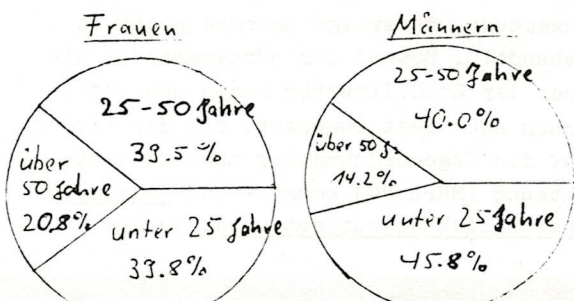 Frauen
25-50 Jahre
39.5%
über
50 Jahre
20,8%
unter 25 Jahre
39.8%
Männern
25-50 Jahre
40.0%
über 50 J.
14.2%
unter 25 Jahre
45.8%